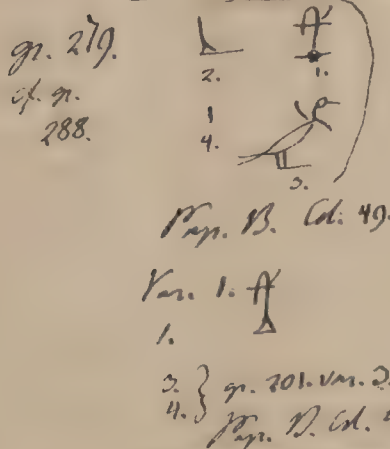 gr. 219.
cf. gr.
288.
2. 1.
4.
3.
Pap. B. Col. 49.
Var. 1.
1.
3. } gr. 201. var. 2.
4. } Pap. B. Col.